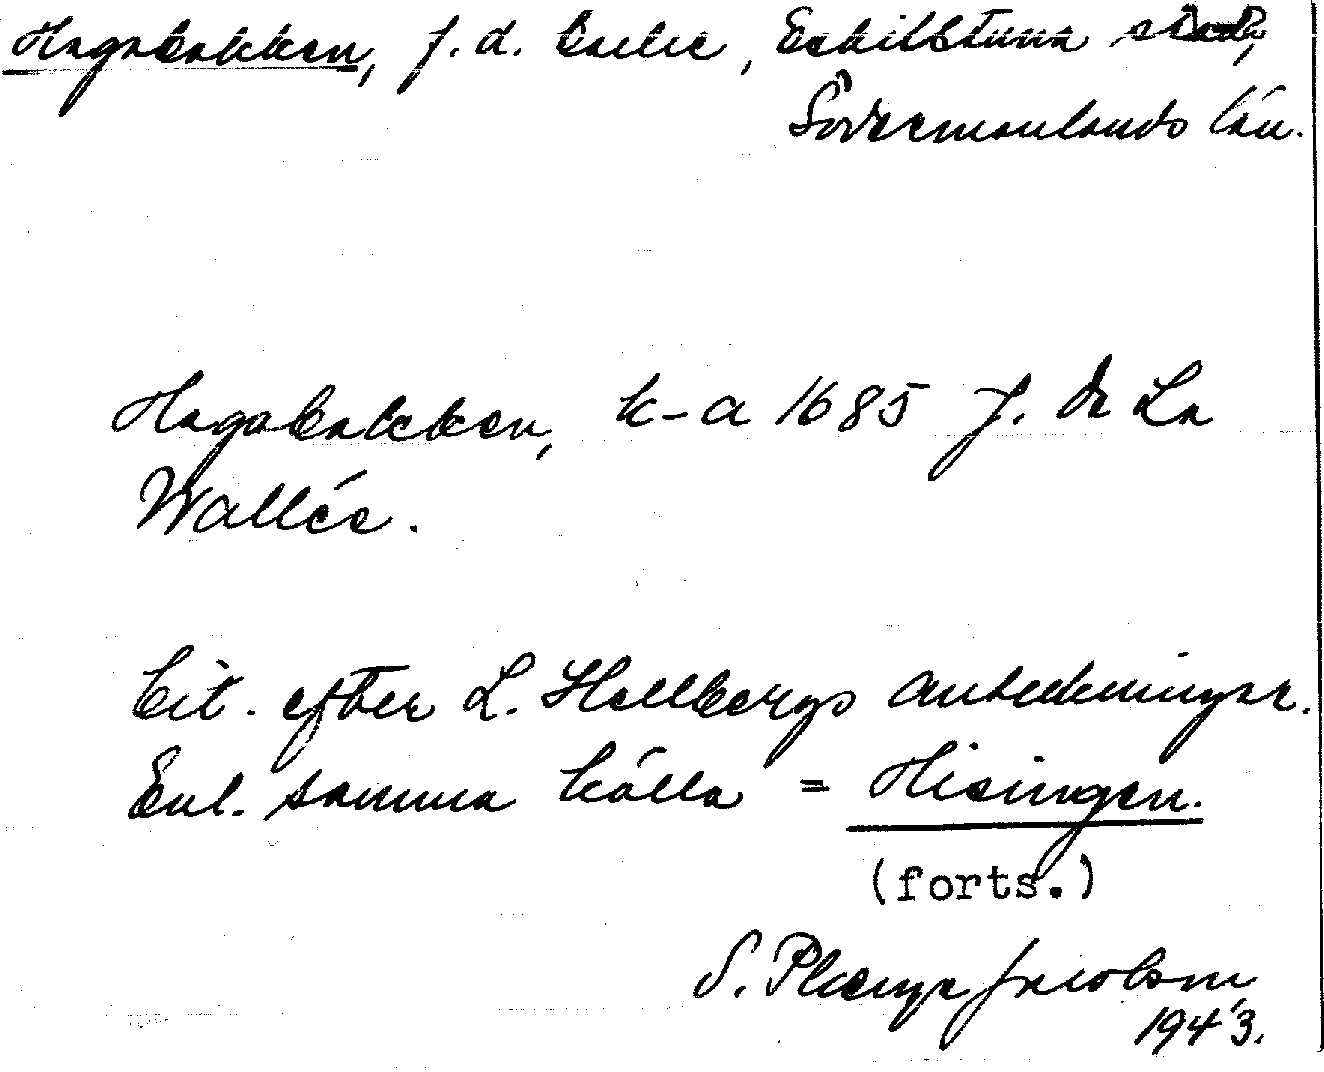 Hagabakken, f. d. backe, Eskilstuna stad,
Södermanlands län.
Hagabakken, k-a 1685 J. De La
Wallée.
Cit. efter L. Hellbergs anteckningar.
Enl. samma källa = Hisingen.
(forts.)
S. Plenge Jacobson,
1943.